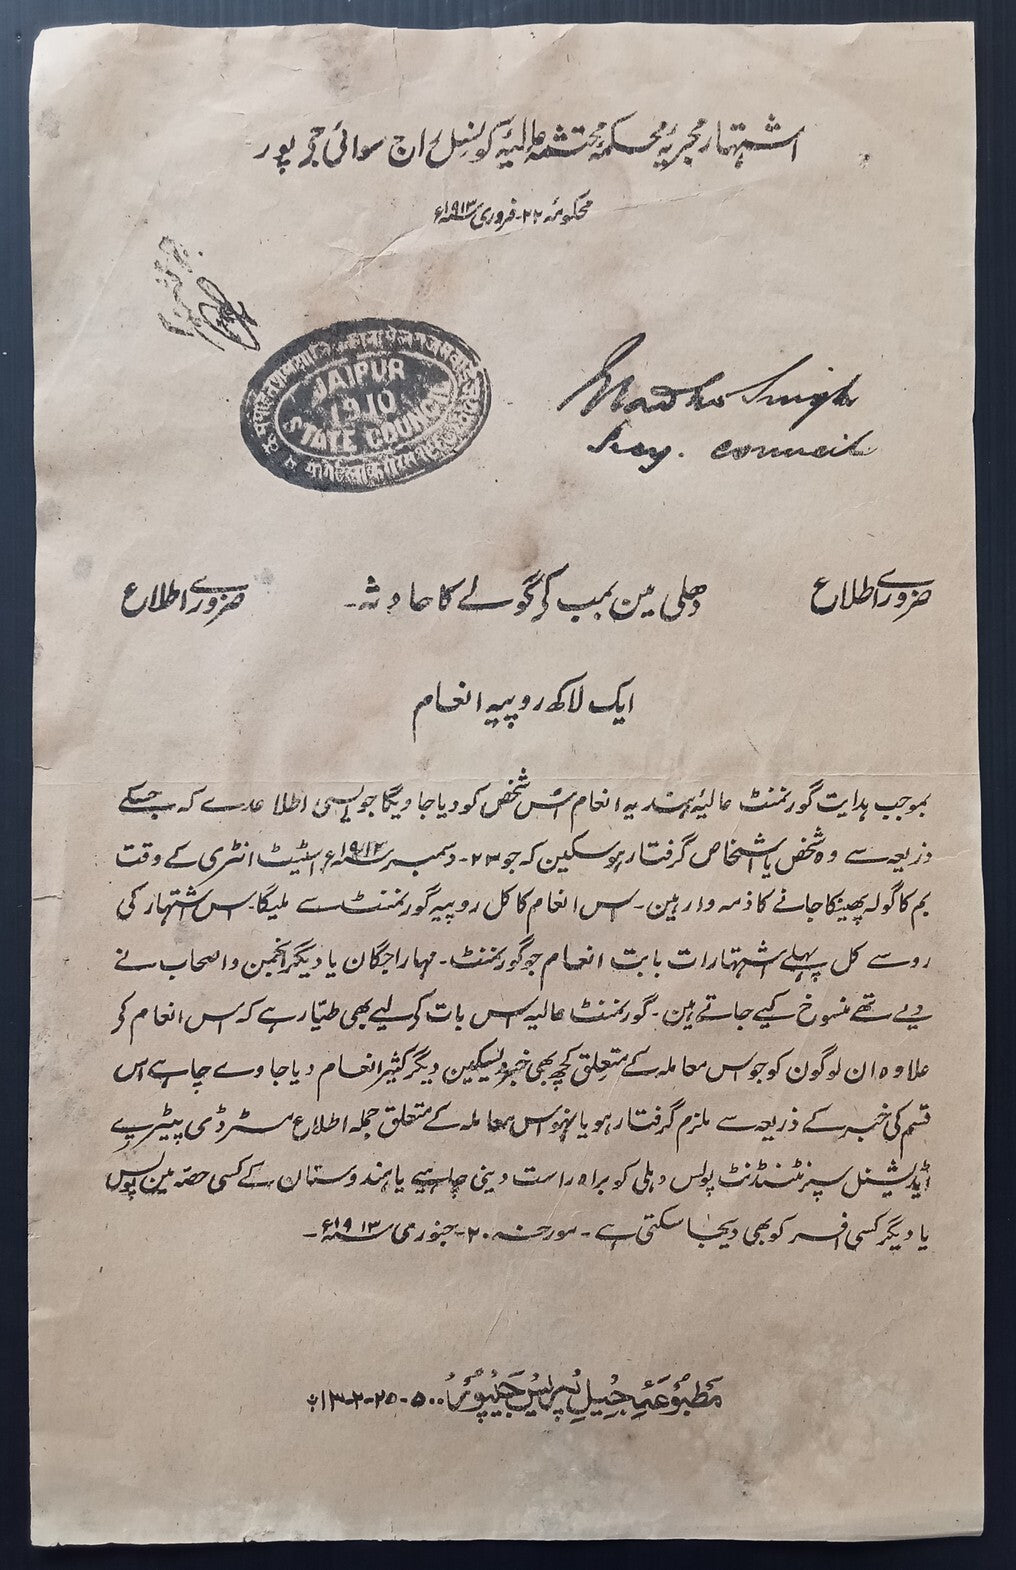 اشتہار مجریۂ محکمۂ محتشمۂ عالیۂ کونسل راج سوائی جے پور
محکومہ ۲۲-فروری سنہ ۱۹۱۳ء
JAIPUR
1910
STATE COUNCIL
Madho Singh
Secy. council
ضروری اطلاع
دہلی مین بمب کے گولے کا حادثہ-
ضروری اطلاع
ایک لاکھ روپیہ انعام
بموجب ہدایت گورنمنٹ عالیۂ ہند یہ انعام اُس شخص کو دیا جاویگا جو ایسی اطلاع دے کہ جسکے
ذریعہ سے وہ شخص یا اشخاص گرفتار ہوسکین کہ جو ۲۳-دسمبر سنہ ۱۹۱۲ء اسٹیٹ انٹری کے وقت
بم کا گولہ پھینکا جانے کا ذمہ دار ہین-اس انعام کا کل روپیہ گورنمنٹ سے ملیگا-اس اشتہار کی
روسے کل پہلے اشتہارات بابت انعام جو گورنمنٹ-مہاراجگان یا دیگر انجمن و اصحاب نے
دیے تھے منسوخ کیے جاتے ہین-گورنمنٹ عالیہ اس بات کے لیے بھی طیار ہے کہ اس انعام کے
علاوہ ان لوگون کو جو اس معاملہ کے متعلق کچھ بھی خبر دیسکین دیگر کثیر انعام دیا جاوے چاہے اس
قسم کی خبر کے ذریعہ سے ملزم گرفتار ہو یا نہو اس معاملہ کے متعلق جملہ اطلاع مسٹر ڈی پیٹری
اڈیشنل سپرنٹنڈنٹ پولس دہلی کو براہ راست دینی چاہیے یا ہندوستان کے کسی حصہ مین پولس
یا دیگر کسی افسر کو بھی دیجا سکتی ہے-مورخہ ۲۰-جنوری سنہ ۱۹۱۳ء-
مطبوعہ جیل پریس جیپور ۵۰۰-۲۵-۲-۱۳ء